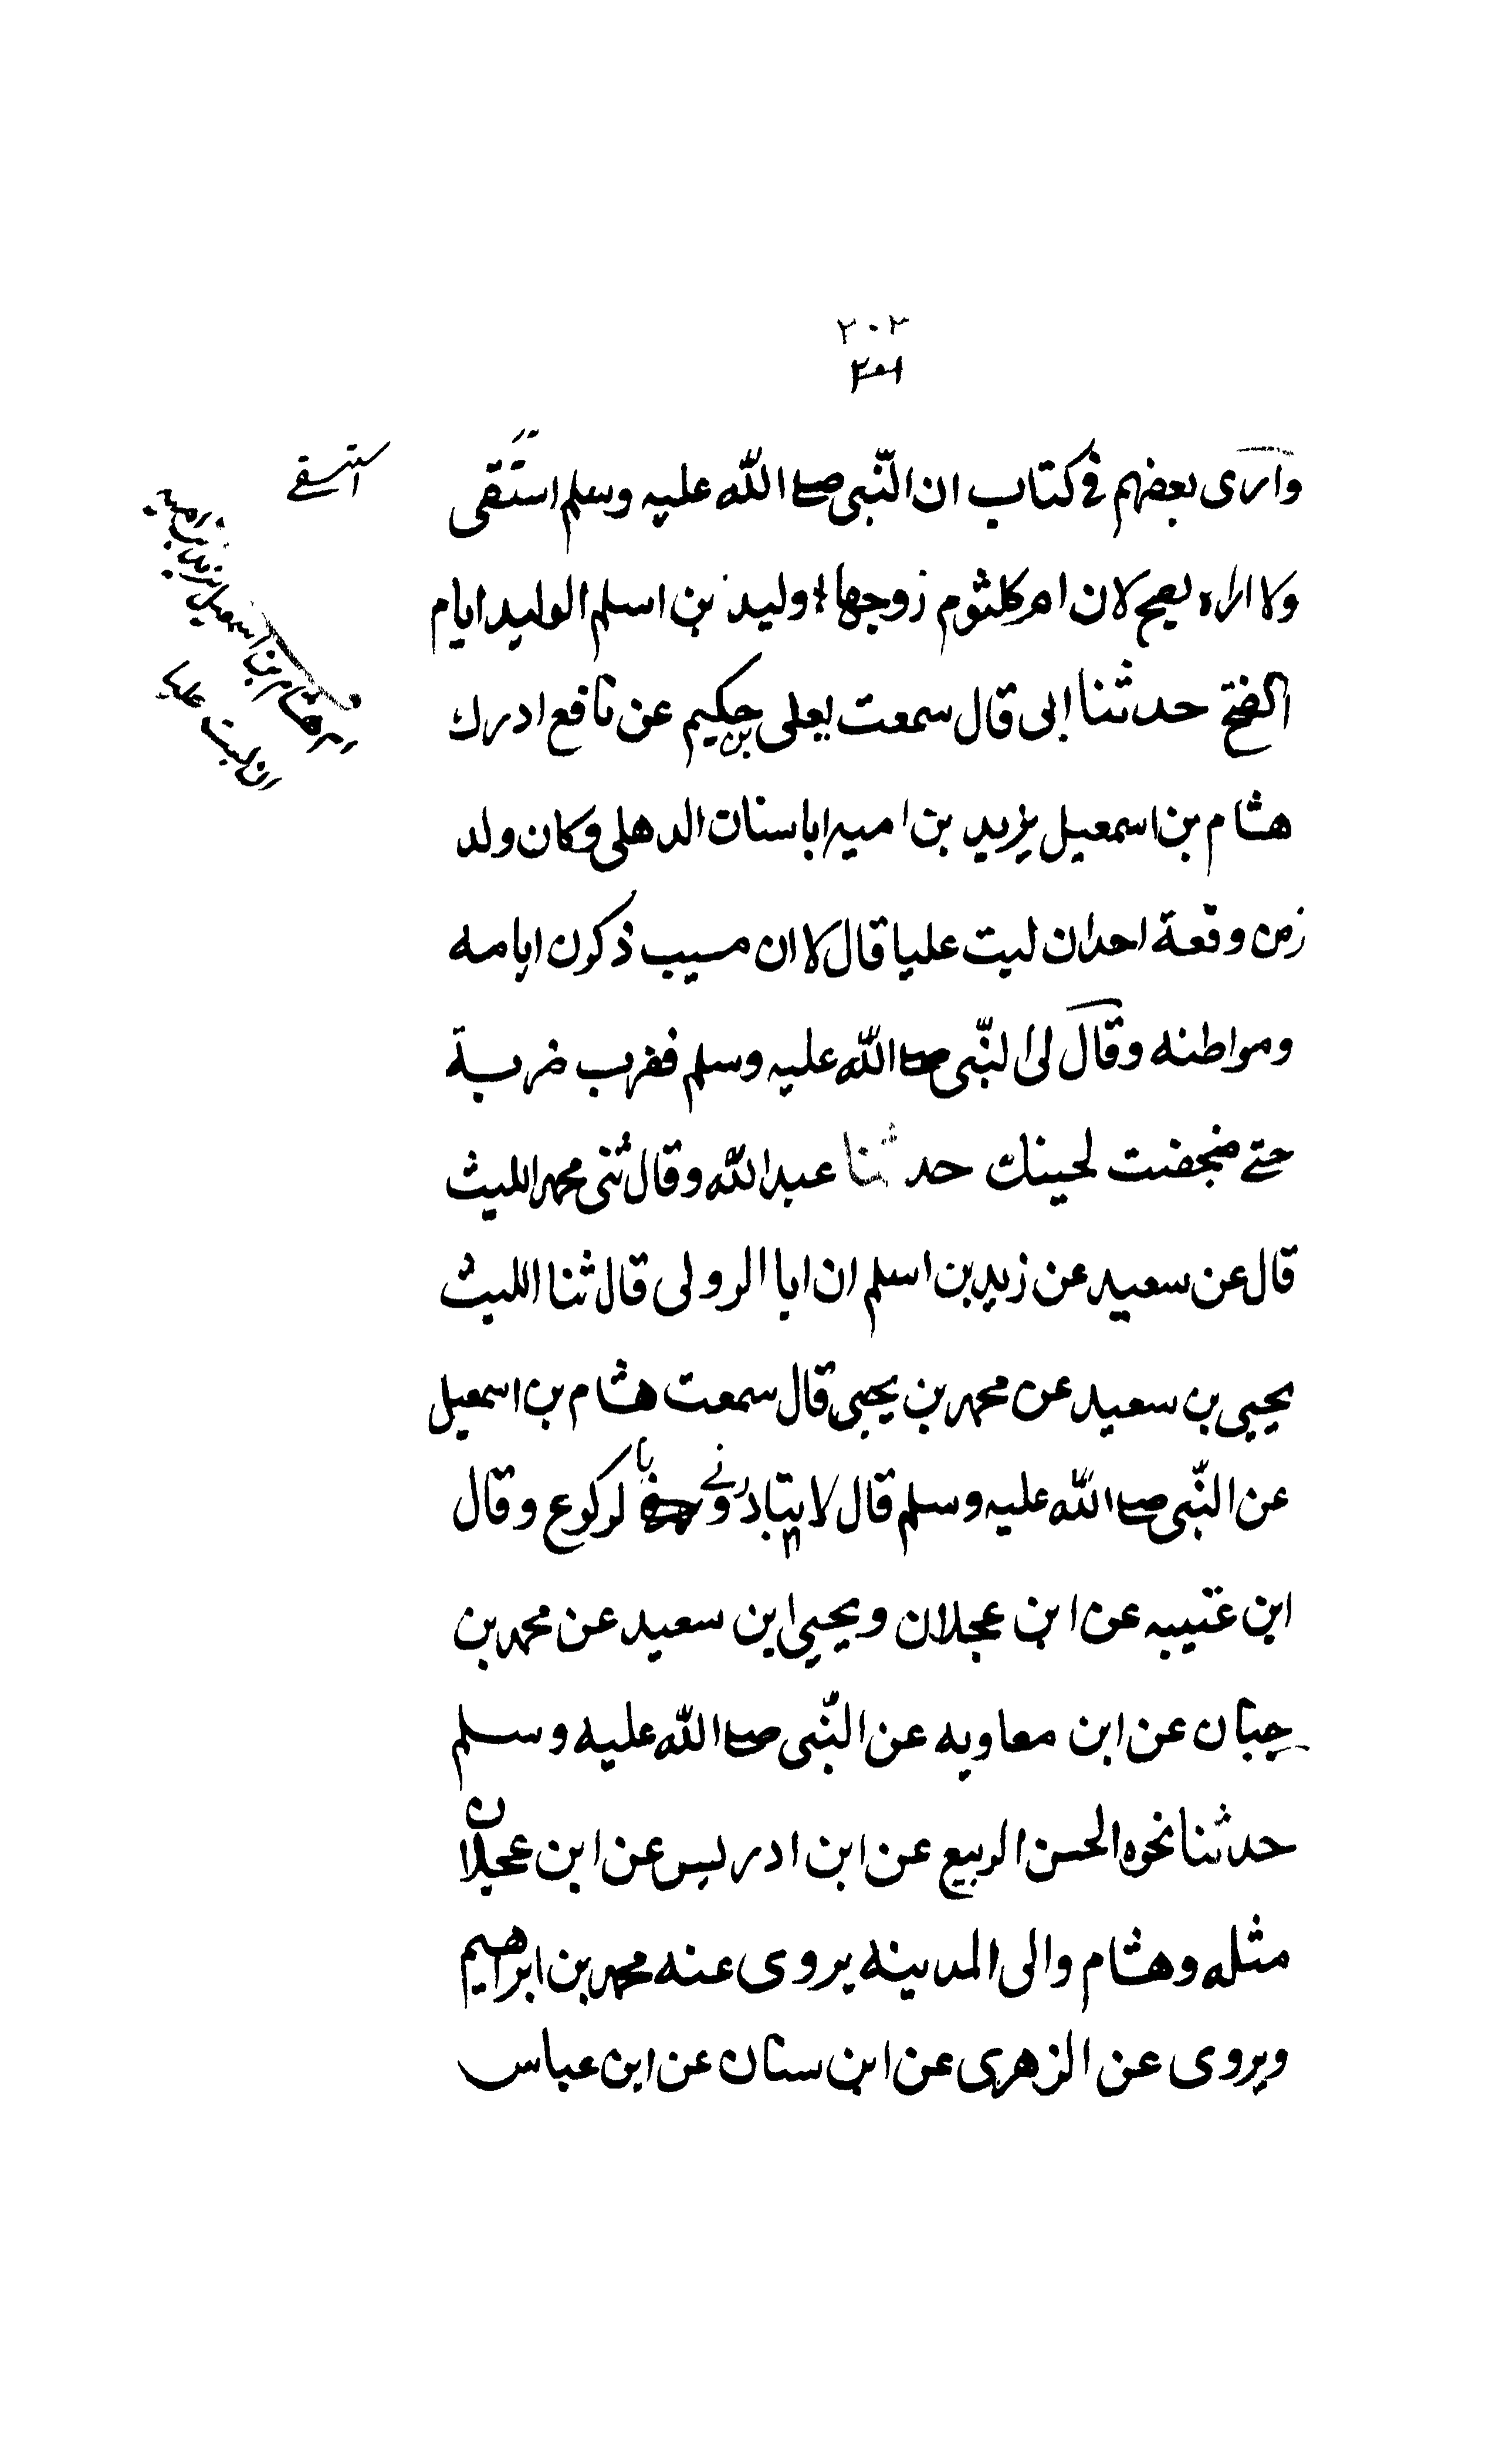 ٢٠٢
وارى بعضهم فى كتاب ان النّبى صلى الله عليه وسلم استقى
استسقى
ولا اراه يصح لان ام كلثوم زوجها اوليد بن اسلم الوليد ايام
الفتح حدثنا ابى قال سمعت يعلى بن حكيم عن نافع ادرك
هشام بن اسمعيل يزيد بن اميه اباسنان الدهلى وكان ولد
زمن وقعة احد ان ليت عليا قال لا ان مسيب ذكرن ايامه
ومواطنه وقال لى النّبى صلى الله عليه وسلم فضرب ضربة
حتى ضجفنت لحينك حدثنا عبد الله وقال ثنى محمد الليث
قال عن سعيد عن زيد بن اسلم ان ابا الرولى قال ثنا الليث
يحيى بن سعيد عن محمد بن يحيى قال سمعت هشام بن اسمعيل
عن النّبى صلى الله عليه وسلم قال لا يتبادرونى با لركوع وقال
ابن عتيبه عن ابن عجلان ويحيى ابن سعيد عن محمد بن
حبان عن ابن معاويه عن النّبى صلى الله عليه وسلم
حدثنا نحوه الحسن الربيع عن ابن ادريس عن ابن عجلان
مثله وهشام والى المدينه يروى عنه محمد بن ابراهيم
ويروى عن الزهرى عن ابن سنان عن ابن عباس